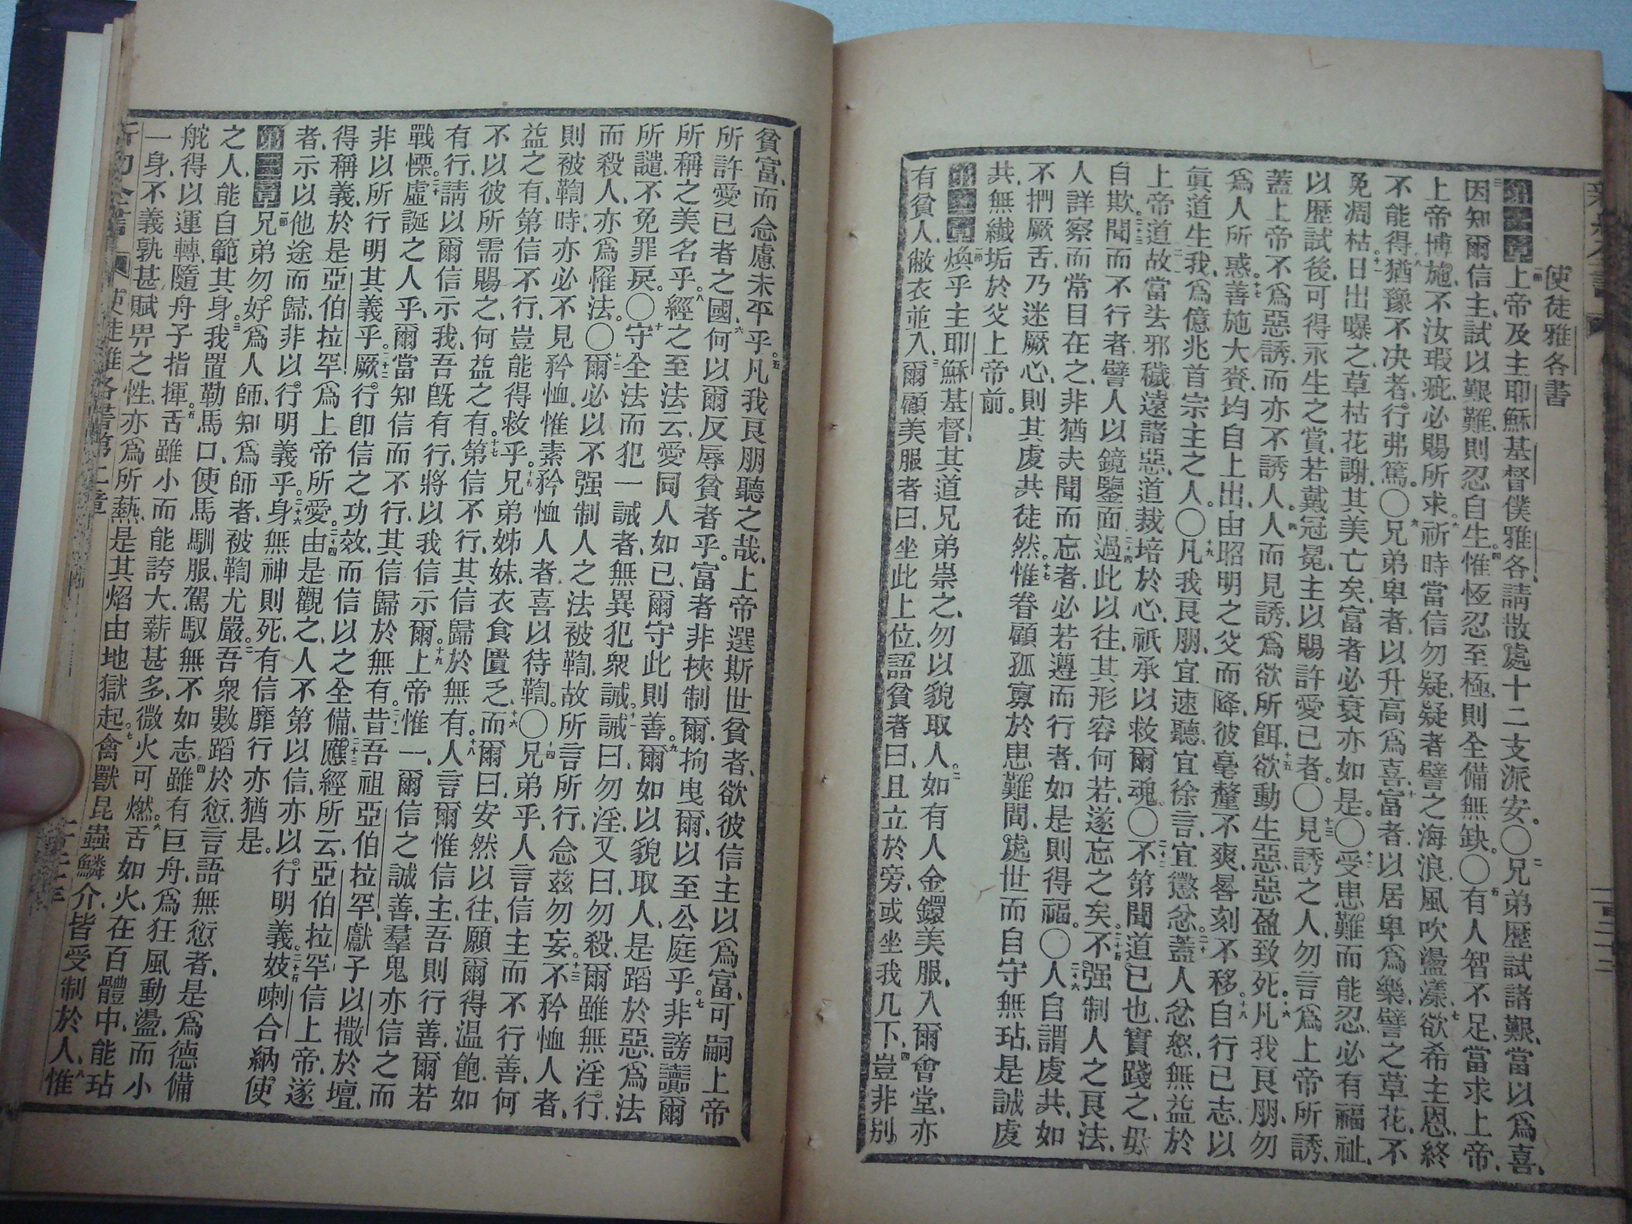 使徒雅各書
第一章 上帝及主耶穌基督僕雅各、請散處十二支派安。〇兄弟歷試諸艱、當以爲喜、
因知爾信主、試以艱難、則忍自生、惟恆忍至極、則全備無缺。〇有人智不足、當求上帝、
上帝博施、不汝瑕疵、必賜所求、祈時當信勿疑、疑者譬之海浪、風吹盪漾、欲希主恩、終
不能得、猶豫不决者、行弗篤。〇兄弟卑者、以升高爲喜、富者以居卑爲樂、譬之草花、不
免凋枯、日出曝之、草枯花謝、其美亡矣、富者必衰亦如是。〇受患難而能忍、必有福祉、
以歷試後、可得永生之賞、若戴冠冕、主以賜許愛己者。〇見誘之人、勿言爲上帝所誘、
蓋上帝不爲惡誘、而亦不誘人、人而見誘、爲欲所餌、欲動生惡、惡盈致死、凡我良朋、勿
爲人所惑、善施大賚、均自上出、由昭明之父而降、彼毫釐不爽、晷刻不移、自行己志、以
眞道生我、爲億兆首宗主之人。〇凡我良朋、宜速聽、宜徐言、宜懲忿、蓋人忿怒、無益於
上帝道、故當去邪穢、遠諸惡、道栽培於心、祇承以救爾魂。〇不第聞道已也、實踐之、毋
自欺、聞而不行者、譬人以鏡鑒面、過此以往、其形容何若、遂忘之矣、不强制人之良法、
人詳察而常目在之、非猶夫聞而忘者、必若遵而行者、如是則得福。〇人自謂虔共、如
不捫厥舌、乃迷厥心、則其虔共徒然、惟眷顧孤寡於患難間、處世而自守無玷、是誠虔
共、無纖垢於父上帝前。
第二章 煥乎主耶穌基督、其道兄弟崇之、勿以貌取人、如有人金鐶美服、入爾會堂、亦
有貧人、敝衣並入、爾顧美服者曰、坐此上位、語貧者曰、且立於旁、或坐我几下、豈非別
貧富、而念慮未平乎。凡我良朋聽之哉、上帝選斯世貧者、欲彼信主以爲富、可嗣上帝
所許愛己者之國、何以爾反辱貧者乎。富者非挾制爾、拘曳爾、以至公庭乎。非謗讟爾
所稱之美名乎。經之至法云、愛同人如己、爾守此則善、爾如以貌取人、是蹈於惡、爲法
所譴、不免罪戾。〇守全法而犯一誡者、無異犯衆誡、誡曰勿淫、又曰勿殺、爾雖無淫行、
而殺人、亦爲罹法。〇爾必以不强制人之法被鞫、故所言所行、念茲勿妄、不矜恤人者、
則被鞫時、亦必不見矜恤、惟素矜恤人者、喜以待鞫。〇兄弟乎、人言信主而不行善、何
益之有、第信不行、豈能得救乎。兄弟姊妹、衣食匱乏、而爾曰安然以往、願爾得温飽、如
不以彼所需賜之、何益之有。第信不行、其信歸於無有。人言爾惟信主、吾則行善、爾若
有行、請以爾信示我、吾旣有行、將以我信示爾、上帝惟一、爾信之誠善、羣鬼亦信之而
戰慄、虛誕之人乎、爾當知信而不行、其信歸於無有。昔吾祖亞伯拉罕、獻子以撒於壇、
非以所行明其義乎。厥行卽信之功效、而信以之全備、應經所云、亞伯拉罕信上帝、遂
得稱義、於是亞伯拉罕爲上帝所愛、由是觀之、人不第以信、亦以行明義、妓喇合納使
者、示以他途而歸、非以行明義乎。身無神則死、有信靡行亦猶是。
第三章 兄弟勿好爲人師、知爲師者、被鞫尤嚴、吾衆數蹈於愆、言語無愆者、是爲德備
之人、能自範其身。我置勒馬口、使馬馴服、駕馭無不如志、雖有巨舟、爲狂風動盪、而小
舵得以運轉、隨舟子指揮。舌雖小而能誇大、薪甚多、微火可燃、舌如火、在百體中、能玷
一身、不義孰甚、賦畀之性、亦爲所爇、是其焰由地獄起、禽獸昆蟲鱗介、皆受制於人、惟
使徒雅各書第二章